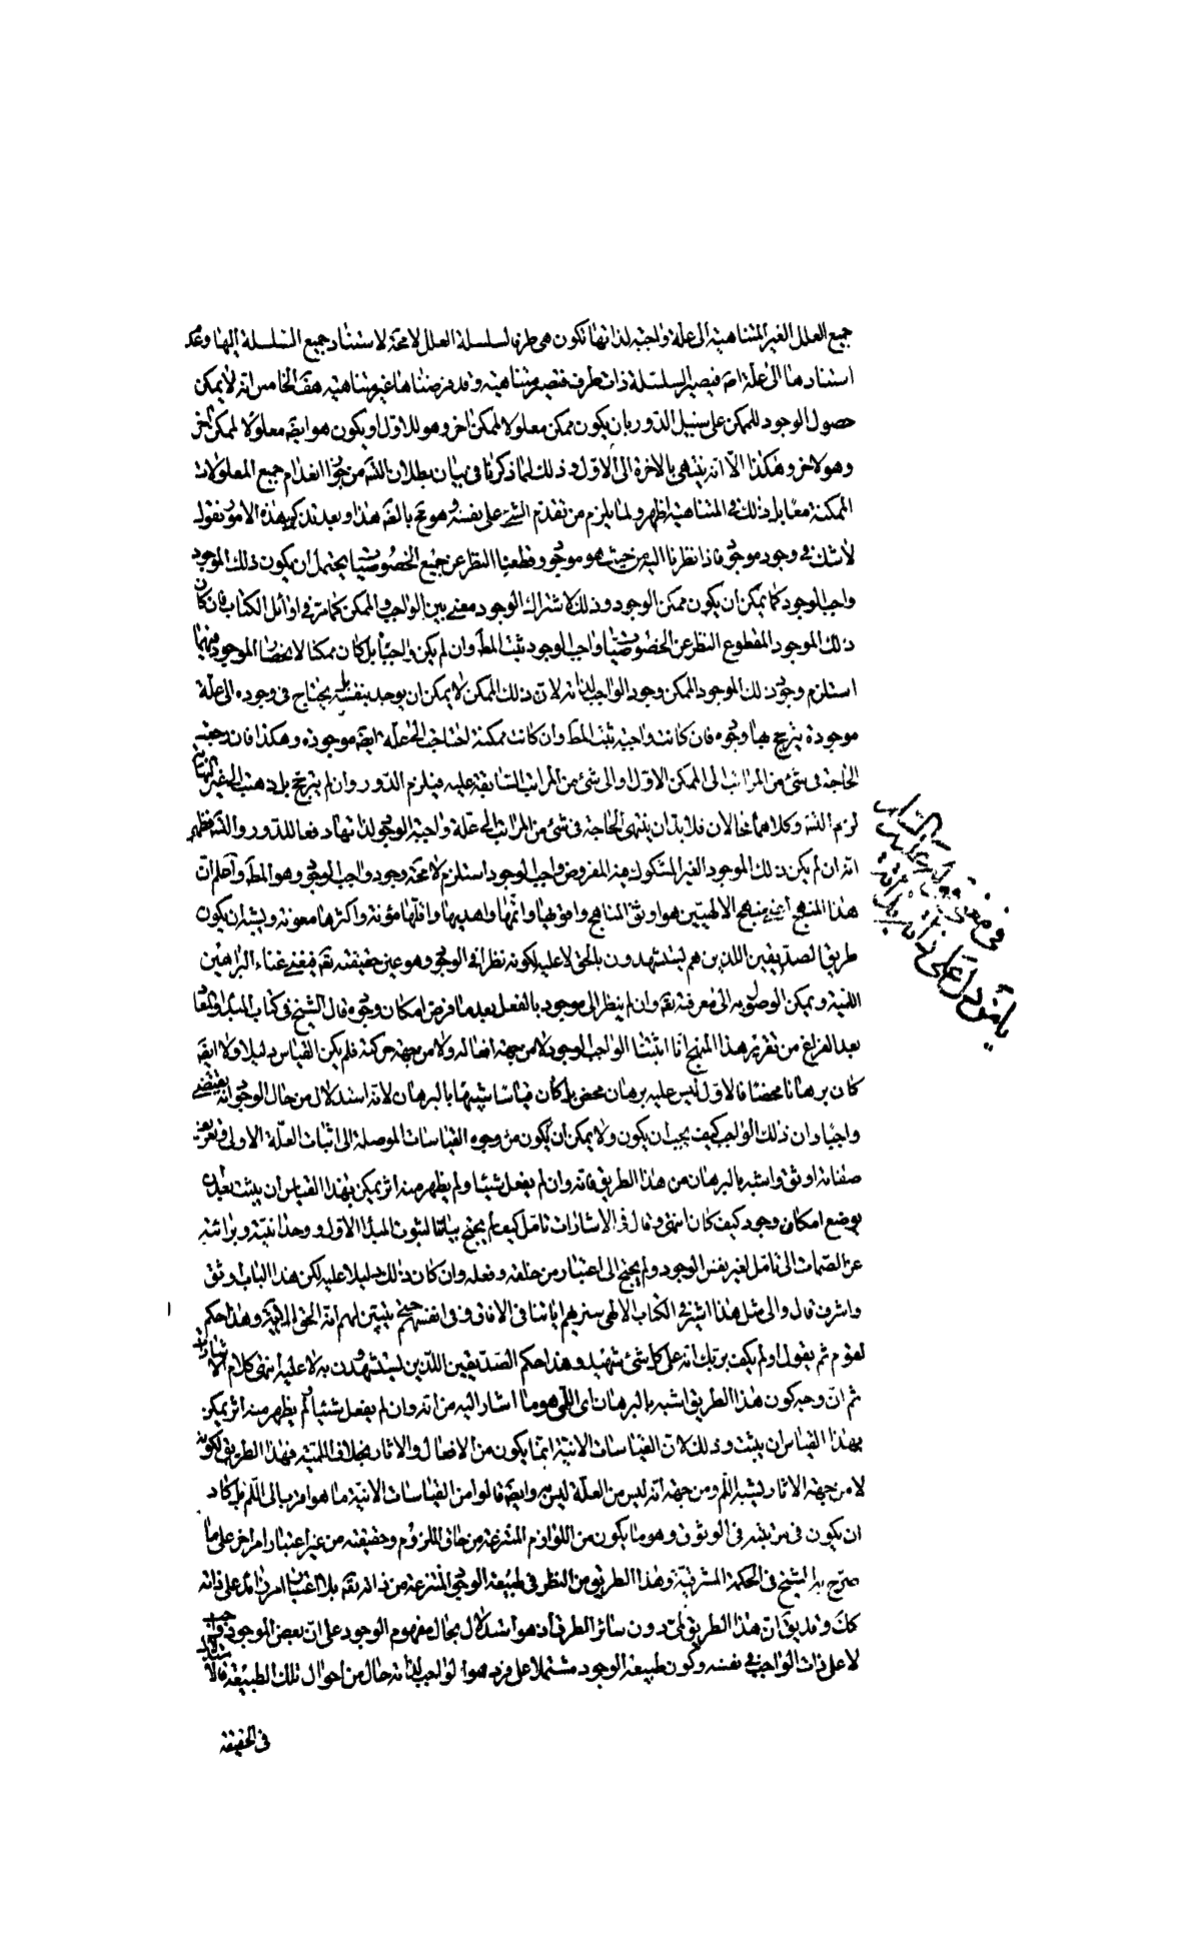 جميع العلل الغير المتناهية الى علة واجبة لذاتها تكون هى طرف لسلسلة العلل لا محة لاستناد جميع السلسلة اليها وعد
استنادها الى علة اصلا فيصير السلسلة ذات طرف فتصير متناهية وقد فرضناها غير متناهية هف الخامس انه لا يمكن
حصول الوجود للممكن على سبيل الدور بان يكون ممكن معلولا لممكن اخر وهو للاول او يكون هو ايضه معلولا لممكن اخر
وهو لاخر وهكذا الا انه ينتهى بالاخرة الى الاول وذلك لما ذكرنا فى بيان بطلان التسه من جواز انعدام جميع المعلولات
الممكنة معا بل ذلك فى المتناهية اظهر ولما يلزم من تقدم الشئ على نفسه وهو مح بالضه هذا وبعد تذكر هذه الامور نقول
لا شك فى وجود موجود فاذا نظرنا اليه من حيث هو موجود وقطعنا النظر عن جميع الخصوصيات يحتمل ان يكون ذلك الموجود
واجب الوجود كما يمكن ان يكون ممكن الوجود وذلك لاشتراك الوجود معنى بين الواجب والممكن كما مر فى اوائل الكتاب فان كان
ذلك الموجود المقطوع النظر عن الخصوصيات واجب الوجود ثبت المط وان لم يكن واجبا بل كان ممكنا لانحصار الموجود فيهما
استلزم وجود ذلك الموجود الممكن وجود الواجب لذاته لان ذلك الممكن لا يمكن ان يوجد بنفسه بل يحتاج فى وجوده الى علة
موجودة يترجح بها وجوده فان كانت واجبة ثبت المط وان كانت ممكنة احتاجت الى علة ايضه موجودة وهكذا فان رجعت
الحاجة فى شئ من المراتب الى الممكن الاول او الى شئ من المراتب السابقة عليه فيلزم الدور وان لم يترجع بل ذهبت الى غير النهاية
لزم التسه وكلاهما محالان فلا بد ان ينتهى الحاجة فى شئ من المراتب الى علة واجبة الوجود لذاتها دفعا للدور والتسه فظهر
انه ان لم يكن ذلك الموجود الغير المشكوك فيه المفروض واجب الوجود استلزم لا محة وجود واجب الوجود وهو المط واعلم ان
هذا المنهج اعنى منهج الالهيين هو اوثق المناهج واقويها واتمها واهديها واقلها مؤنة واكثرها معونة ويشبه ان يكون
طريق الصديقين الذين هم يستشهدون بالحق لا عليه لكونه نظرا فى الوجود وهو عين حقيقته تعه فيغنى غناء البراهين
اللمية ويمكن الوصول به الى معرفة تعه وان لم ينظر الى موجود بالفعل بعد ما فرض امكان وجوده قال الشيخ فى كتاب المبدا والمعاد
بعد الفراغ من تقرير هذا المنهج انا اثبتنا الواجب الوجود لا من جهة افعاله ولا من جهة حركته فلم يكن القياس دليلا ولا ايضه
كان برهانا محضا فالاول ليس عليه برهان محض بل كان قياسا شبيها بالبرهان لانه استدلال من حال الوجود انه يقتضى
واجبا وان ذلك الواجب كيف يجب ان يكون ولا يمكن ان يكون من وجوه القياسات الموصلة الى اثبات العلة الاولى وتعريف
صفاته اوثق واشبه بالبرهان من هذا الطريق فانه وان لم يفعل شيئا ولم يظهر منه اثر يمكن بهذا القياس ان يثبت بعد ان
يوضع امكان وجود كيف كان انتهى وقال فى الاشارات تامل كيف لم يحتج بياننا لثبوت المبدا الاول ووحدانيته وبراءته
عن الصمات الى تامل لغير نفس الوجود ولم يحتج الى اعتبار من خلقه وفعله وان كان ذلك دليلا عليه لكن هذا الباب اوثق
واشرف قال والى مثل هذا اشير فى الكتاب الالهى سنريهم اياتنا فى الافاق وفى انفسهم حتى يتبين لهم انه الحق وهذا حكم
لقوم ثم يقول اولم يكف بربك انه على كل شئ شهيد وهذا حكم الصديقين الذين يستشهدون به لا عليه انتهى كلام الاشارات
ثم ان وجه كون هذا الطريق اشبه بالبرهان اى اللمى هو ما اشار اليه من انه وان لم يفعل شيئا ولم يظهر منه اثر يمكن
بهذا القياس ان يثبت وذلك لان القياسات الانية انما يكون من الافعال والاثار بخلاف اللمية فهذا الطريق لكونه
لا من جهة الاثار يشبه اللم ومن جهة انه ليس من العلة ليس به وايضه قالوا من القياسات الانية ما هو اقرب الى اللم بل كاد
ان يكون فى مرتبته فى الوثوق وهو ما يكون من اللوازم المنتزعة من حاق الملزوم وحقيقته من غير اعتبار امر اخر على ما
صرح به الشيخ فى الحكمة المشرقية وهذا الطريق من النظر فى طبيعة الوجود المنتزعة من ذاته تعه بلا اعتبار امر زائد على ذاته
كك وقد يقه ان هذا الطريق لمى دون سائر الطرق اذ هو استدلال بحال مفهوم الوجود على ان بعض الموجود واجب
لا على ذات الواجب فى نفسه وكون طبيعة الوجود مشتملا على فرد هو الواجب لذاته حال من احوال تلك الطبيعة فالاستدلال
فى الحقيقة
يا من دل على ذاته بذاته